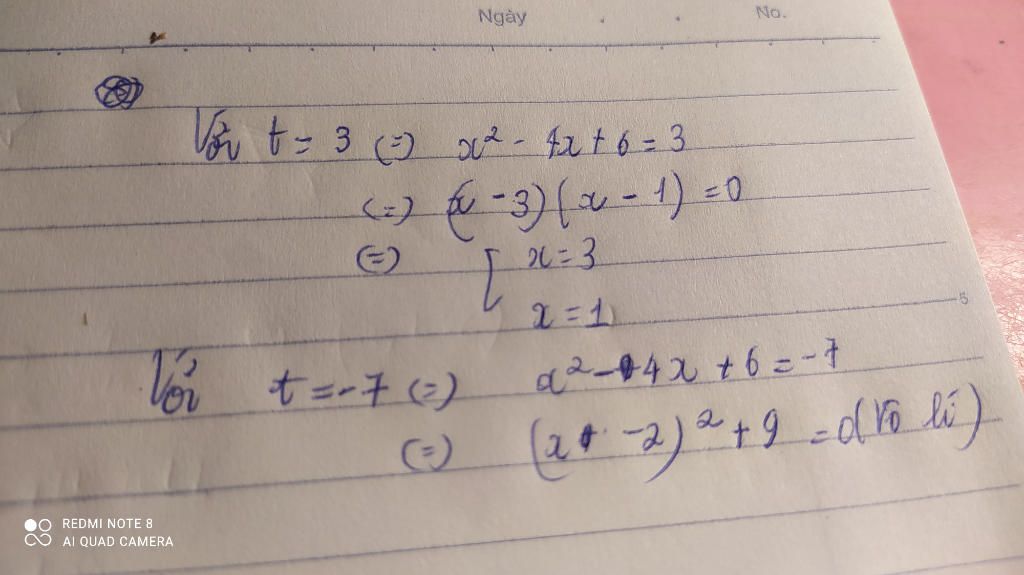 Ngày No.
Với t = 3 (=) x² - 4x + 6 = 3
(=) (x - 3)(x - 1) = 0
(=) [ x = 3
x = 1
5
Với t = -7 (=) x² - 4x + 6 = -7
(=) (x - 2)² + 9 = 0 (vô lí)
REDMI NOTE 8
AI QUAD CAMERA